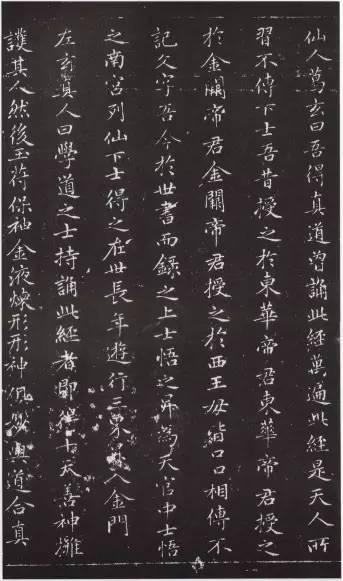 仙人葛玄曰吾得真道曽誦此經萬遍此經是天人所
習不傳下士吾昔授之於東華帝君東華帝君授之
於金闕帝君金闕帝君授之於西王母皆口口相傳不
記文字吾今於世書而錄之上士悟之昇為天官中士悟
之南宮列仙下士得之在世長年遊行三界昇入金門
左玄真人曰學道之士持誦此經者即得十天善神擁
護其人然後玉符保神金液煉形形神俱妙與道合真